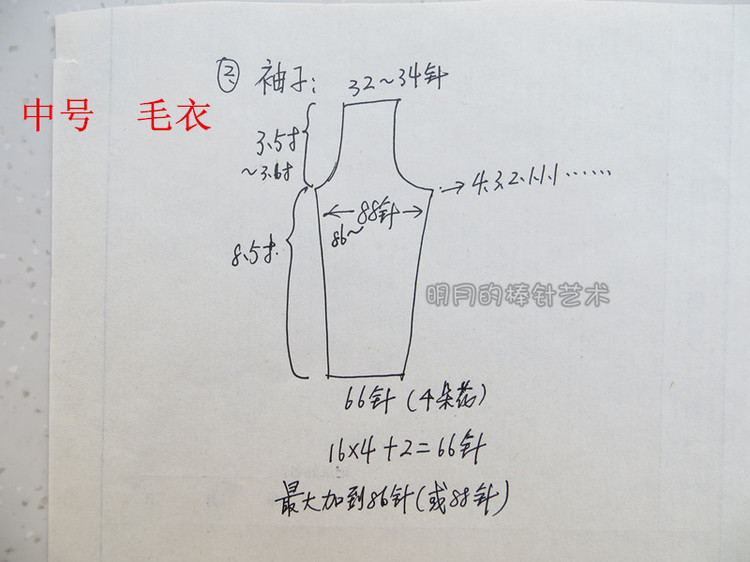 ② 袖子:
32~34针
中号 毛衣
3.5寸
~3.6寸
→4.3.2.1.1.1……
←88针→
86~
8.5寸
明月的棒针艺术
66针(4朵花)
16×4+2=66针
最大加到86针(或88针)